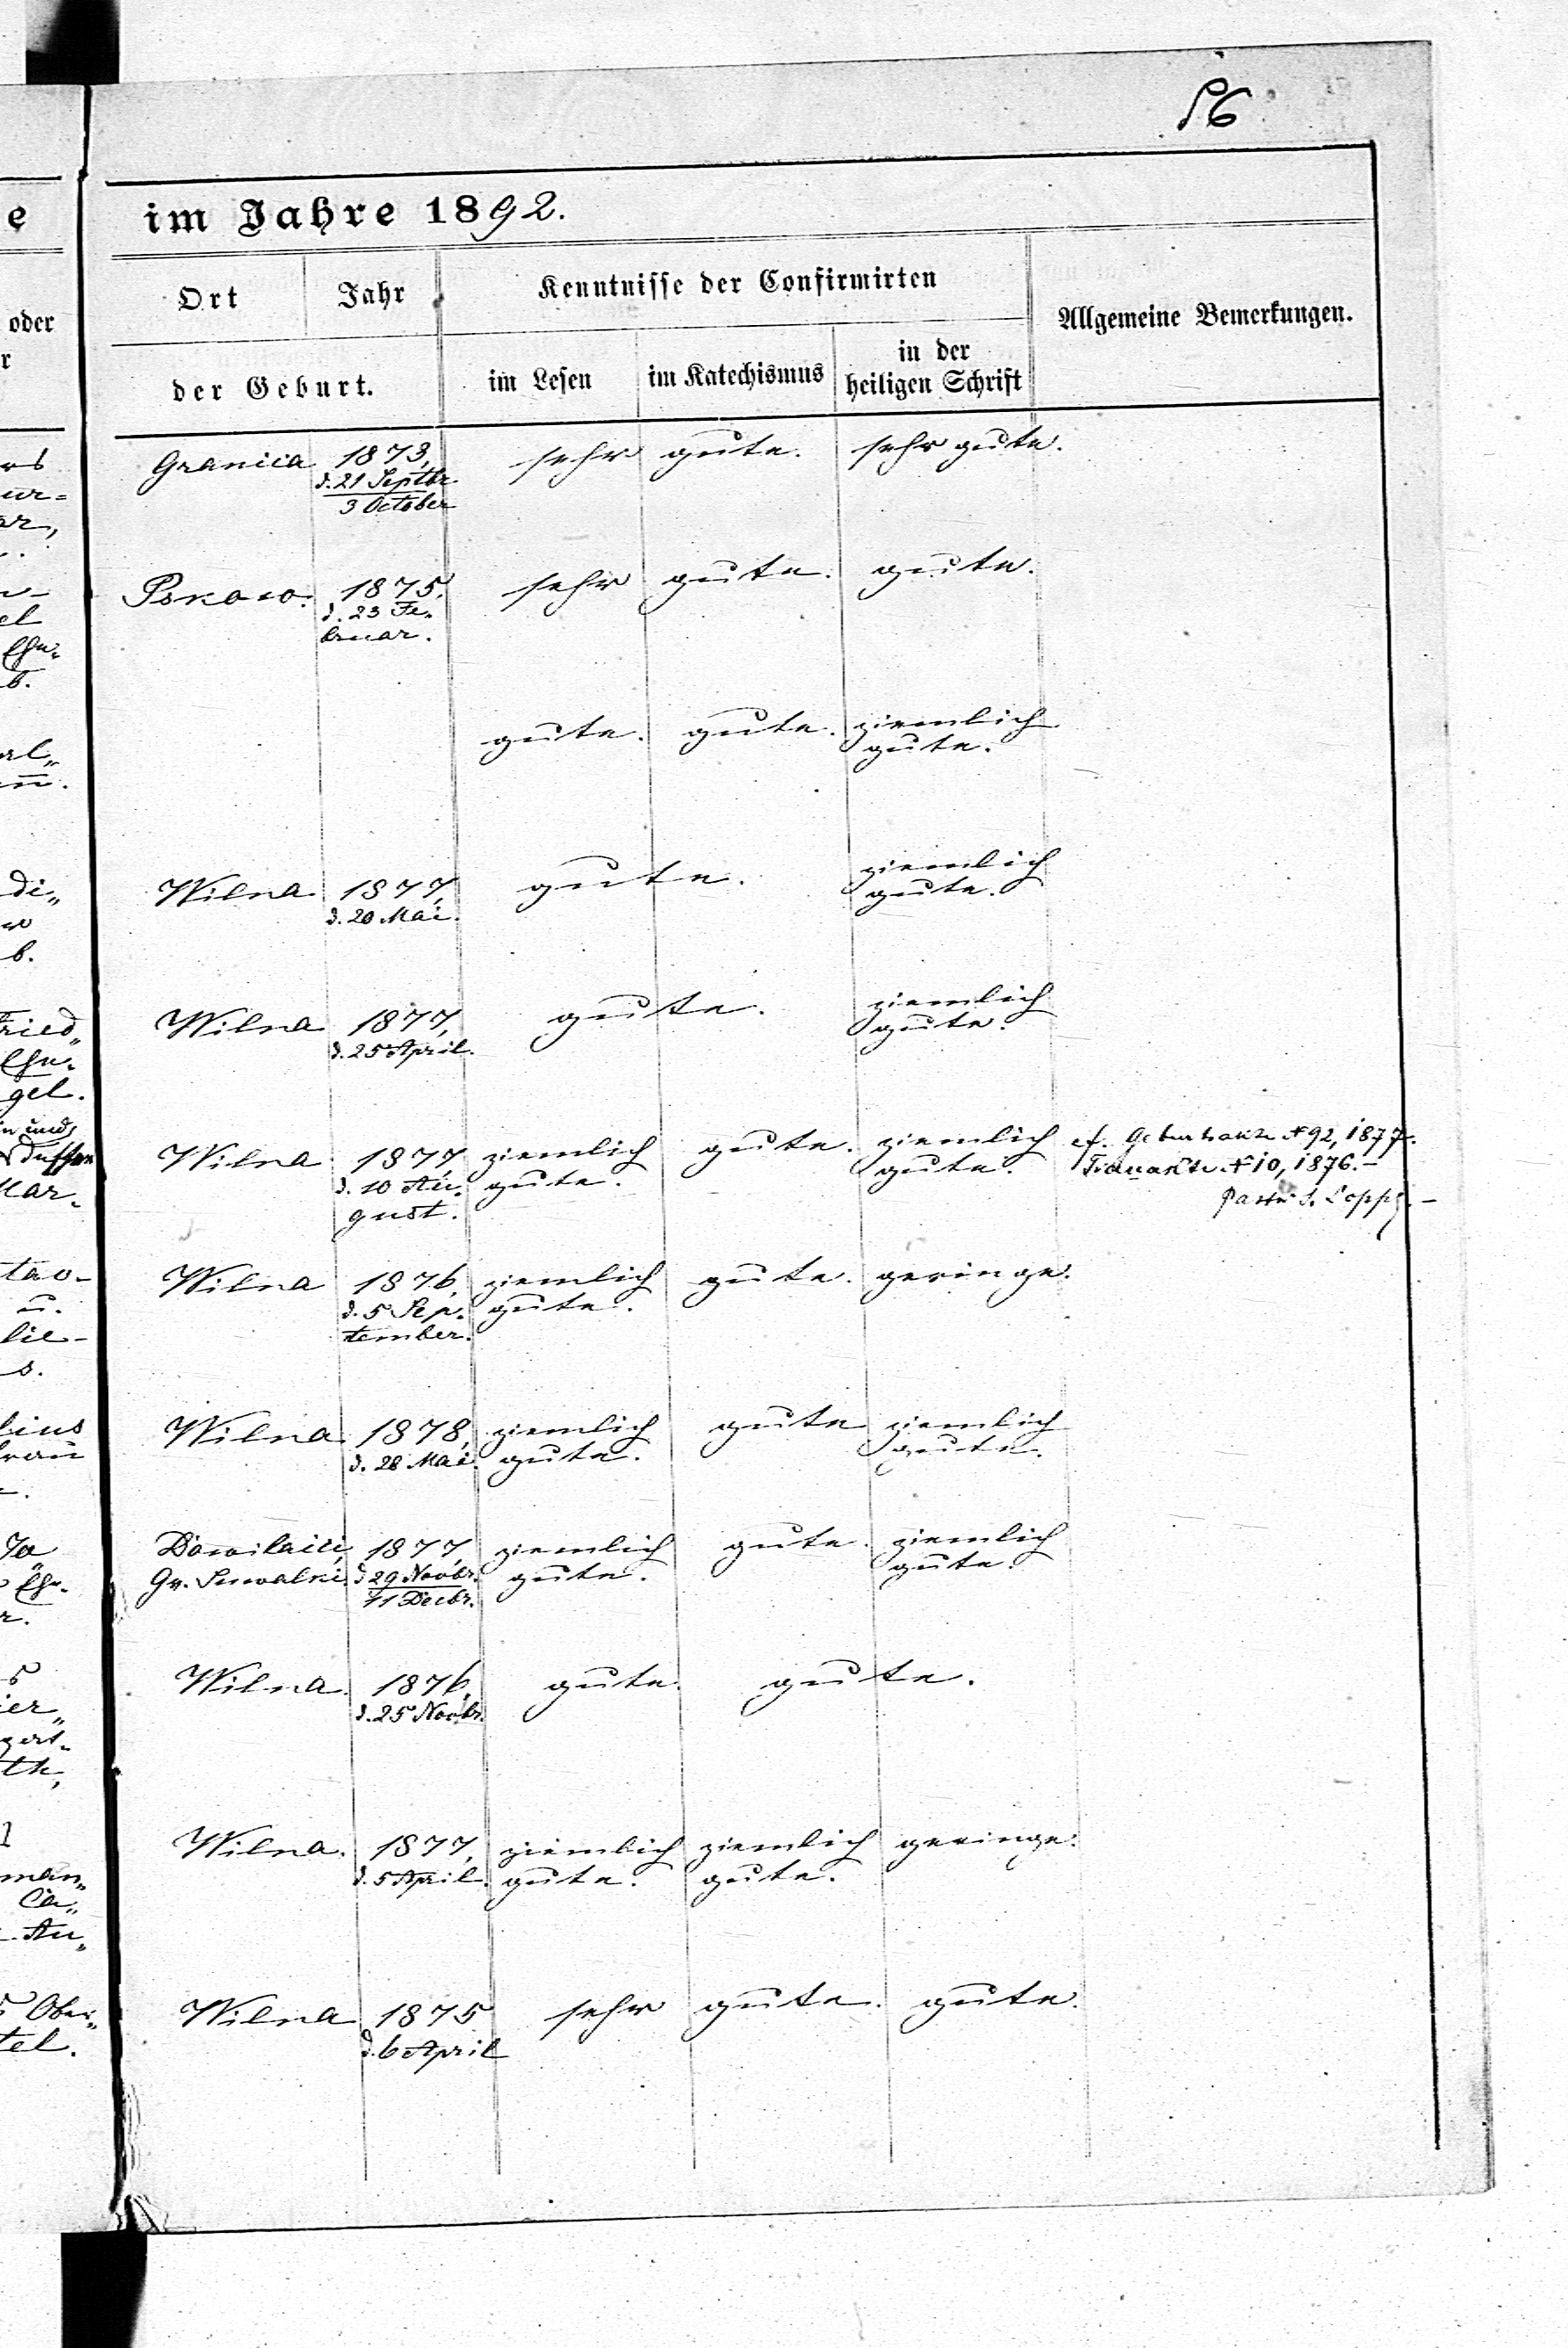 56
im Jahre 1892.
Ort Jahr Kenntnisse der Confirmirten Allgemeine Bemerkungen.
der Geburt. im Lesen im Katechismus in der heiligen Schrift
Granica 1873, sehr gute. sehr gute.
d. 21 Septbr.
3 October
Pskow. 1875. sehr gute. gute.
d. 23 Fe-
bruar.
gute. gute. ziemlich
gute.
Wilna 1877, gute. ziemlich
d. 20 Mai. gute.
Wilna 1877, gute. ziemlich
d. 25 April. gute.
Wilna 1877, ziemlich gute. ziemlich cf. Geburtsakte № 92, 1877.
d. 10 Au- gute. gute. Trauakte № 10, 1876.-
gust. Pastor
Wilna 1876, ziemlich gute. geringe.
d. 5 Sep- gute.
tember.
Wilna 1878, ziemlich gute ziemlich
d. 28 Mai. gute. gute.
1877, ziemlich gute. ziemlich
Gv. Suwalki. d. 29 Novbr. gute. gute.
11 Decbr.
Wilna. 1876, gute. gute.
d. 25 Novbr.
Wilna. 1877, ziemlich ziemlich geringe.
d. 5 April. gute. gute.
Wilna 1875 sehr gute. gute.
d. 6 April